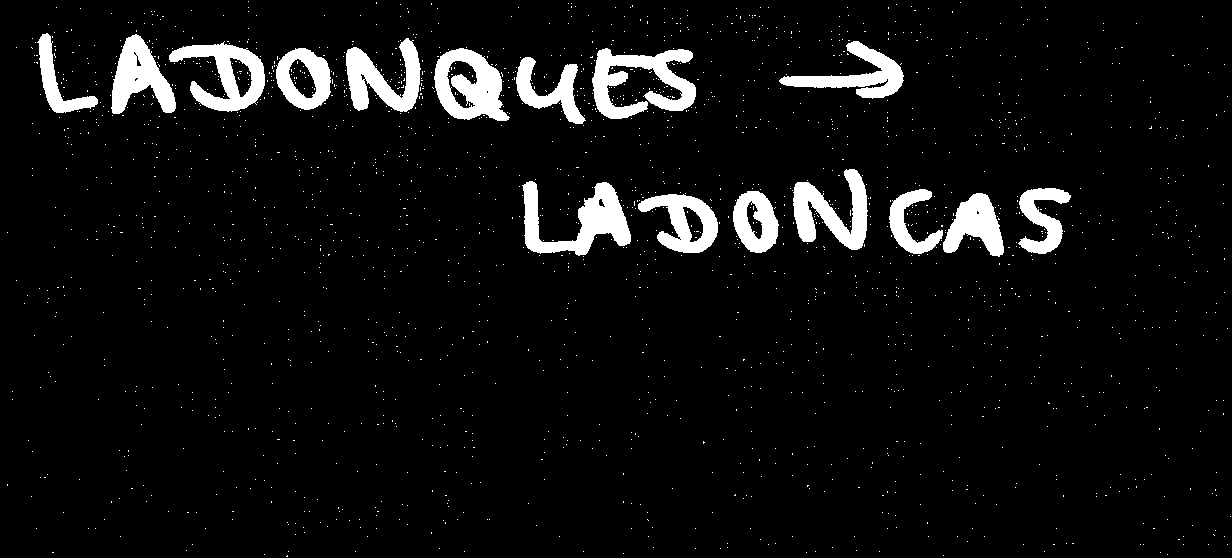 LADONQUES →
LADONCAS